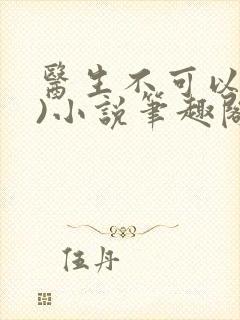 醫生不可以
)小說筆趣閣
伍丹